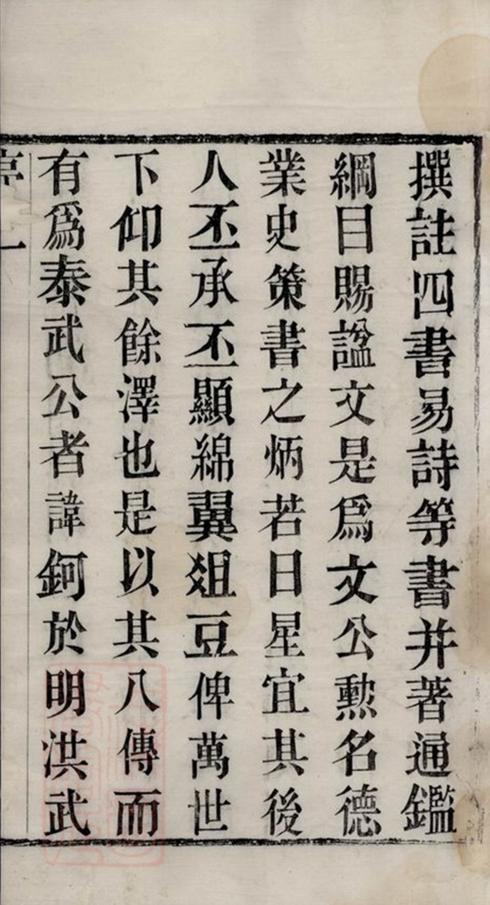 撰註四書易詩等書并著通鑑
綱目賜諡文是爲文公勲名德
業史策書之炳若日星宜其後
人丕承丕顯綿翼俎豆俾萬世
下仰其餘澤也是以其八傳而
有爲泰武公者諱鈳於明洪武